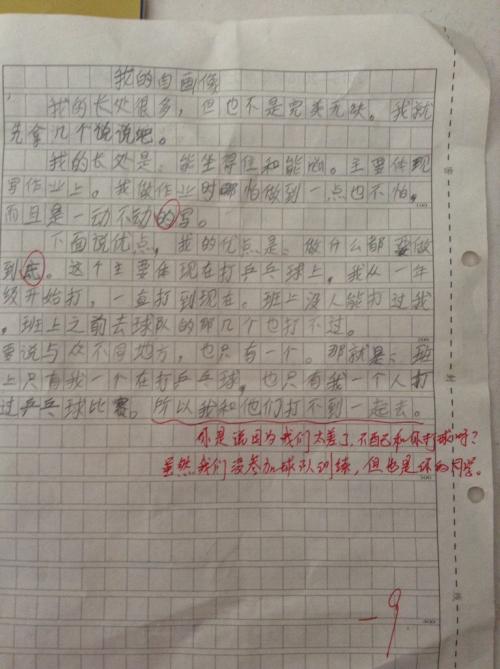 我的自画像
我的长处很多，但也不是完美无缺。我就
先拿几个说说吧。
我的长处是：能坐得住和能做。主要体现
写作业上。我做作业时哪怕做到一点也不怕，
而且是一动不动的写。
下面说优点，我的优点是：做什么都要做
到底。这个主要体现在打乒乓球上，我从一年
级开始打，一直打到现在。班上没人能打过我
，班上之前去球队的那几个也打不过。
要说与众不同地方，也只有一个。那就是：班
上只有我一个在打乒乓球，也只有我一个人打
过乒乓球比赛。所以我和他们打不到一起去。
你是说因为我们太差了，不配和你打球呀？
虽然我们没参加球队训练，但也是你的同学。